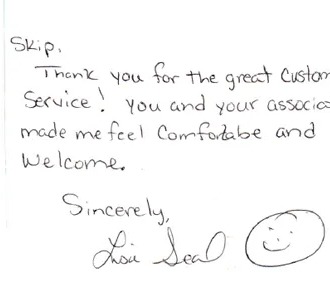 Skip,
Thank you for the great Custom
Service! You and your associa
made me feel Comfortabe and
Welcome.
Sincerely,
Seal